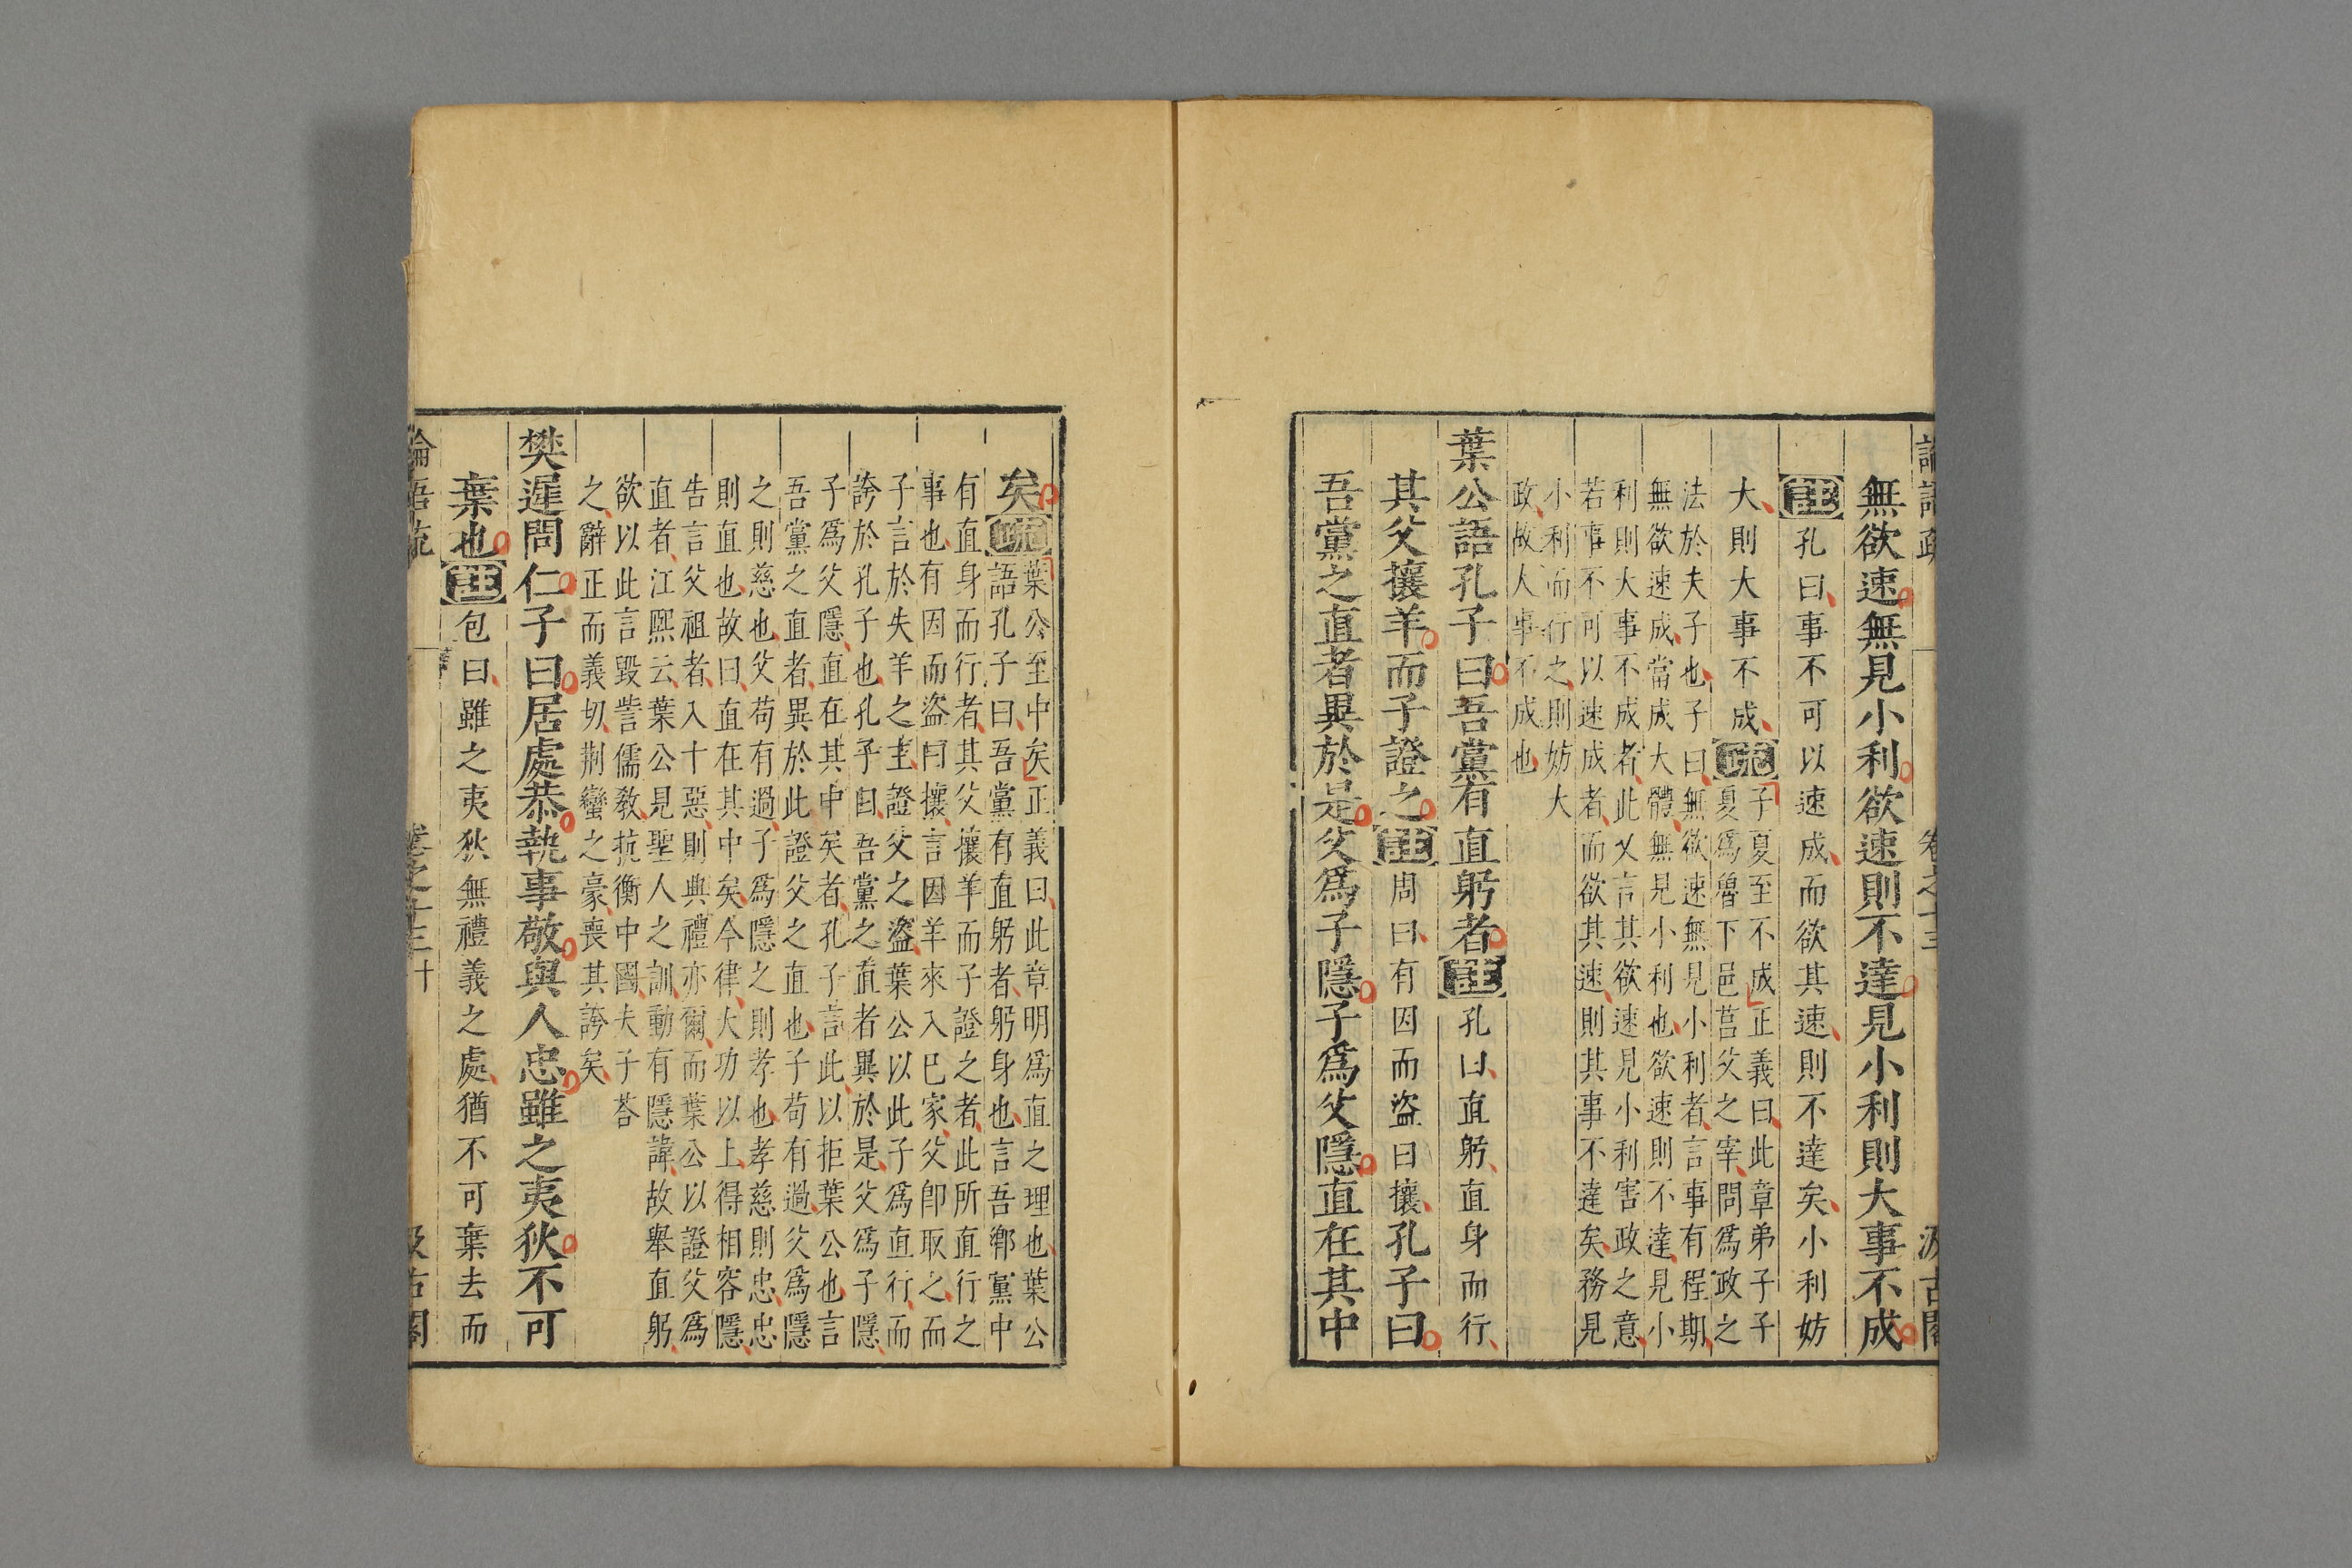 無欲速無見小利欲速則不達見小利則大事不成
註孔曰事不可以速成而欲其速則不達矣小利妨
大則大事不成疏
子夏至不成正義曰此章弟子子
夏爲魯下邑莒父之宰問爲政之
法於夫子也子曰無欲速無見小利者言事有程期
無欲速成當成大體無見小利也欲速則不達見小
利則大事不成者此又言其欲速見小利害政之意
若事不可以速成者而欲其速則其事不達矣務見
小利而行之則妨大
政故大事不成也
葉公語孔子曰吾黨有直躬者註孔曰直躬直身而行
其父攘羊而子證之註周曰有因而盜曰攘孔子曰
吾黨之直者異於是父爲子隱子爲父隱直在其中
矣疏
葉公至中矣正義曰此章明爲直之理也葉公
語孔子曰吾黨有直躬者躬身也言吾鄉黨中
有直身而行者其父攘羊而子證之者此所直行之
事也有因而盜曰攘言因羊來入已家父卽取之而
子言於失羊之主證父之盜葉公以此子爲直行而
誇於孔子也孔子曰吾黨之直者異於是父爲子隱
子爲父隱直在其中矣者孔子言此以拒葉公也言
吾黨之直者異於此證父之直也子苟有過父爲隱
之則慈也父苟有過子爲隱之則孝也孝慈則忠忠
則直也故曰直在其中矣今律大功以上得相容隱
告言父祖者入十惡則典禮亦爾而葉公以證父爲
直者江熙云葉公見聖人之訓動有隱諱故舉直躬
欲以此言毀訾儒敎抗衡中國夫子荅
之辭正而義切荆蠻之豪喪其誇矣
樊遲問仁子曰居處恭執事敬與人忠雖之夷狄不可
棄也註包曰雖之夷狄無禮義之處猶不可棄去而